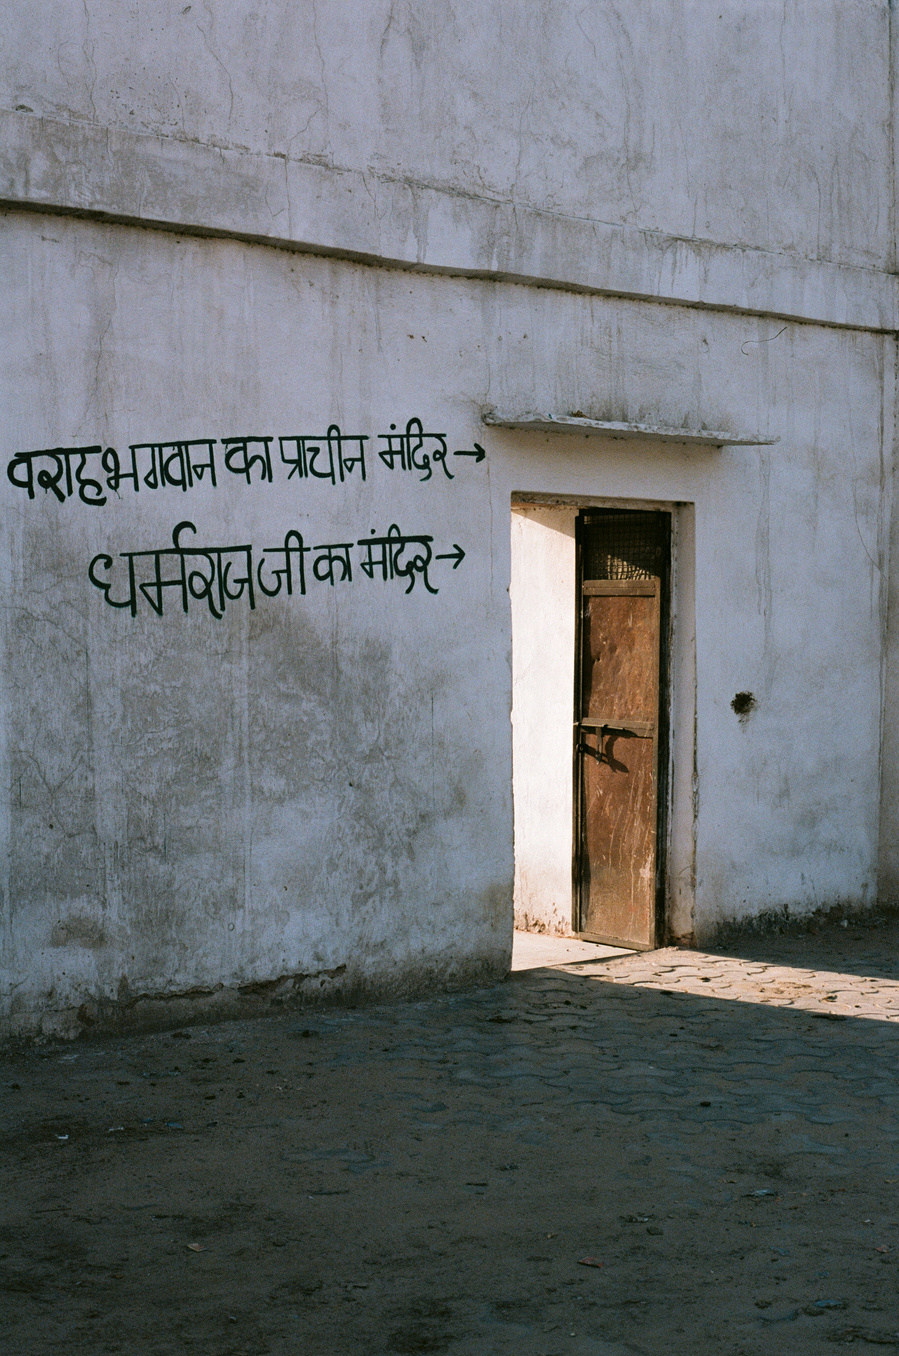 वराह भगवान का प्राचीन मंदिर →
धर्मराज जी का मंदिर →